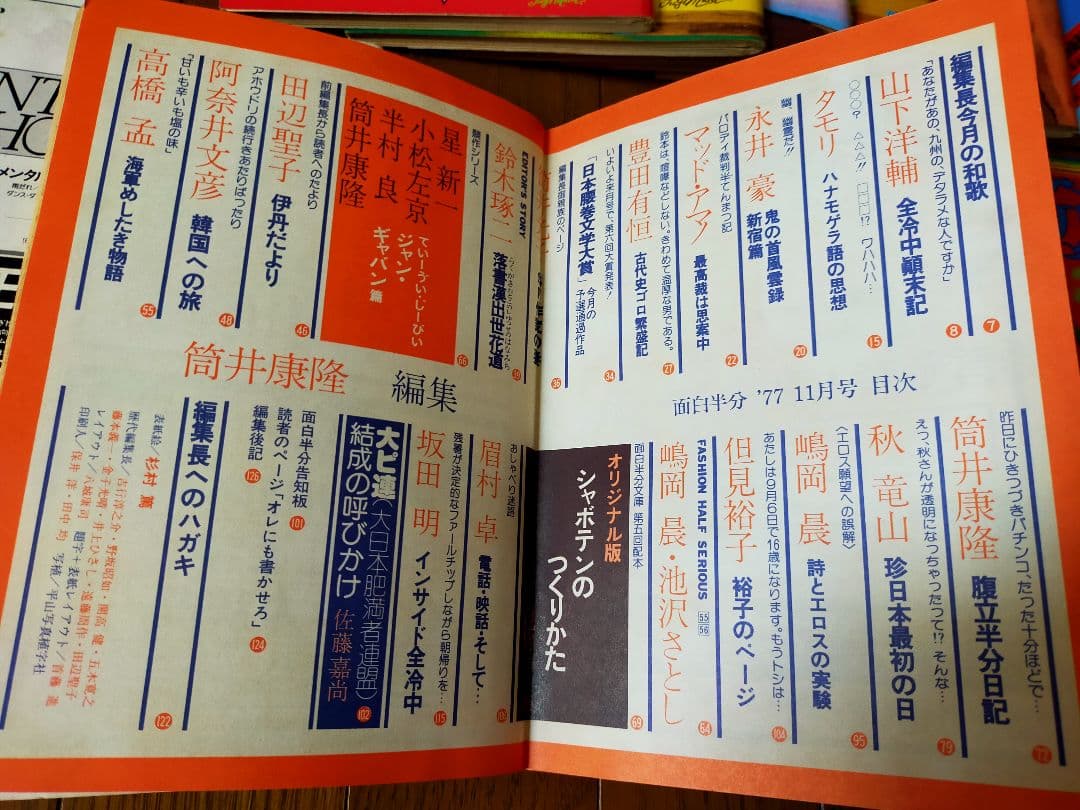 面白半分 '77 11月号 目次
編集長今月の和歌
7
「あなたがあの、九州の、デタラメな人ですか」
山下洋輔
全冷中顚末記
8
○○○? △△△!! □□□!? ワハハハ…
タモリ
ハナモゲラ語の思想
15
幽、幽霊だ!!
永井豪
鬼の首風雲録
新宿篇
20
パロディ裁判半てんまつ記
マッド・アマノ
最高裁は思案中
22
鈴木は、喧嘩などしない。きわめて温厚な男である。
豊田有恒
古代史ゴロ繁盛記
27
いよいよ来月号で、第六回大賞発表!
「日本腰巻文学大賞」
今月の予選通過作品
34
編集長宿親族のページ
36
EDITOR'S STORY
鈴木琢二
落書漢出世花道
39
競作シリーズ
星新一
小松左京
半村良
筒井康隆
でぃーぶい・じーびい
ジャン・ギャバン篇
66
前編集長から読者へのたより
田辺聖子
伊丹だより
46
アホウドリの続行きあたりばったり
阿奈井文彦
韓国への旅
48
「甘いも辛いも塩の味」
高橋孟
海軍めしたき物語
55
昨日にひきつづきパチンコ、たった十分ほどで…
筒井康隆
腹立半分日記
72
えっ、秋さんが透明になっちゃったって!? そんな…
秋竜山
珍日本最初の日
79
〈エロス願望への誤解〉
嶋岡晨
詩とエロスの実験
95
あたしは9月6日で16歳になります。もうトシは…
但見裕子
裕子のページ
104
FASHION HALF SERIOUS 55 56
嶋岡晨・池沢さとし
64
面白半分文庫 第五回配本
69
オリジナル版
シャボテンのつくりかた
筒井康隆 編集
おしゃべり迷語
眉村卓
電話・映話・そして…
残暑が決定的なファールチップしながら朝帰りを…
坂田明
インサイド全冷中
115
大ピ連〈大日本肥満者連盟〉
結成の呼びかけ 佐藤嘉尚
102
面白半分告知板 101
読者のページ「オレにも書かせろ」 124
編集後記 126
編集長へのハガキ
122
表紙絵/杉村篤
歴代編集長/吉行淳之介・野坂昭如・開高健・五木寛之
藤本義一・金子光晴・井上ひさし・遠藤周作・田辺聖子
レイアウト/八城謙司 題字+表紙レイアウト/首藤進
印刷人/保井洋・田中功 写植/平山写真植字社